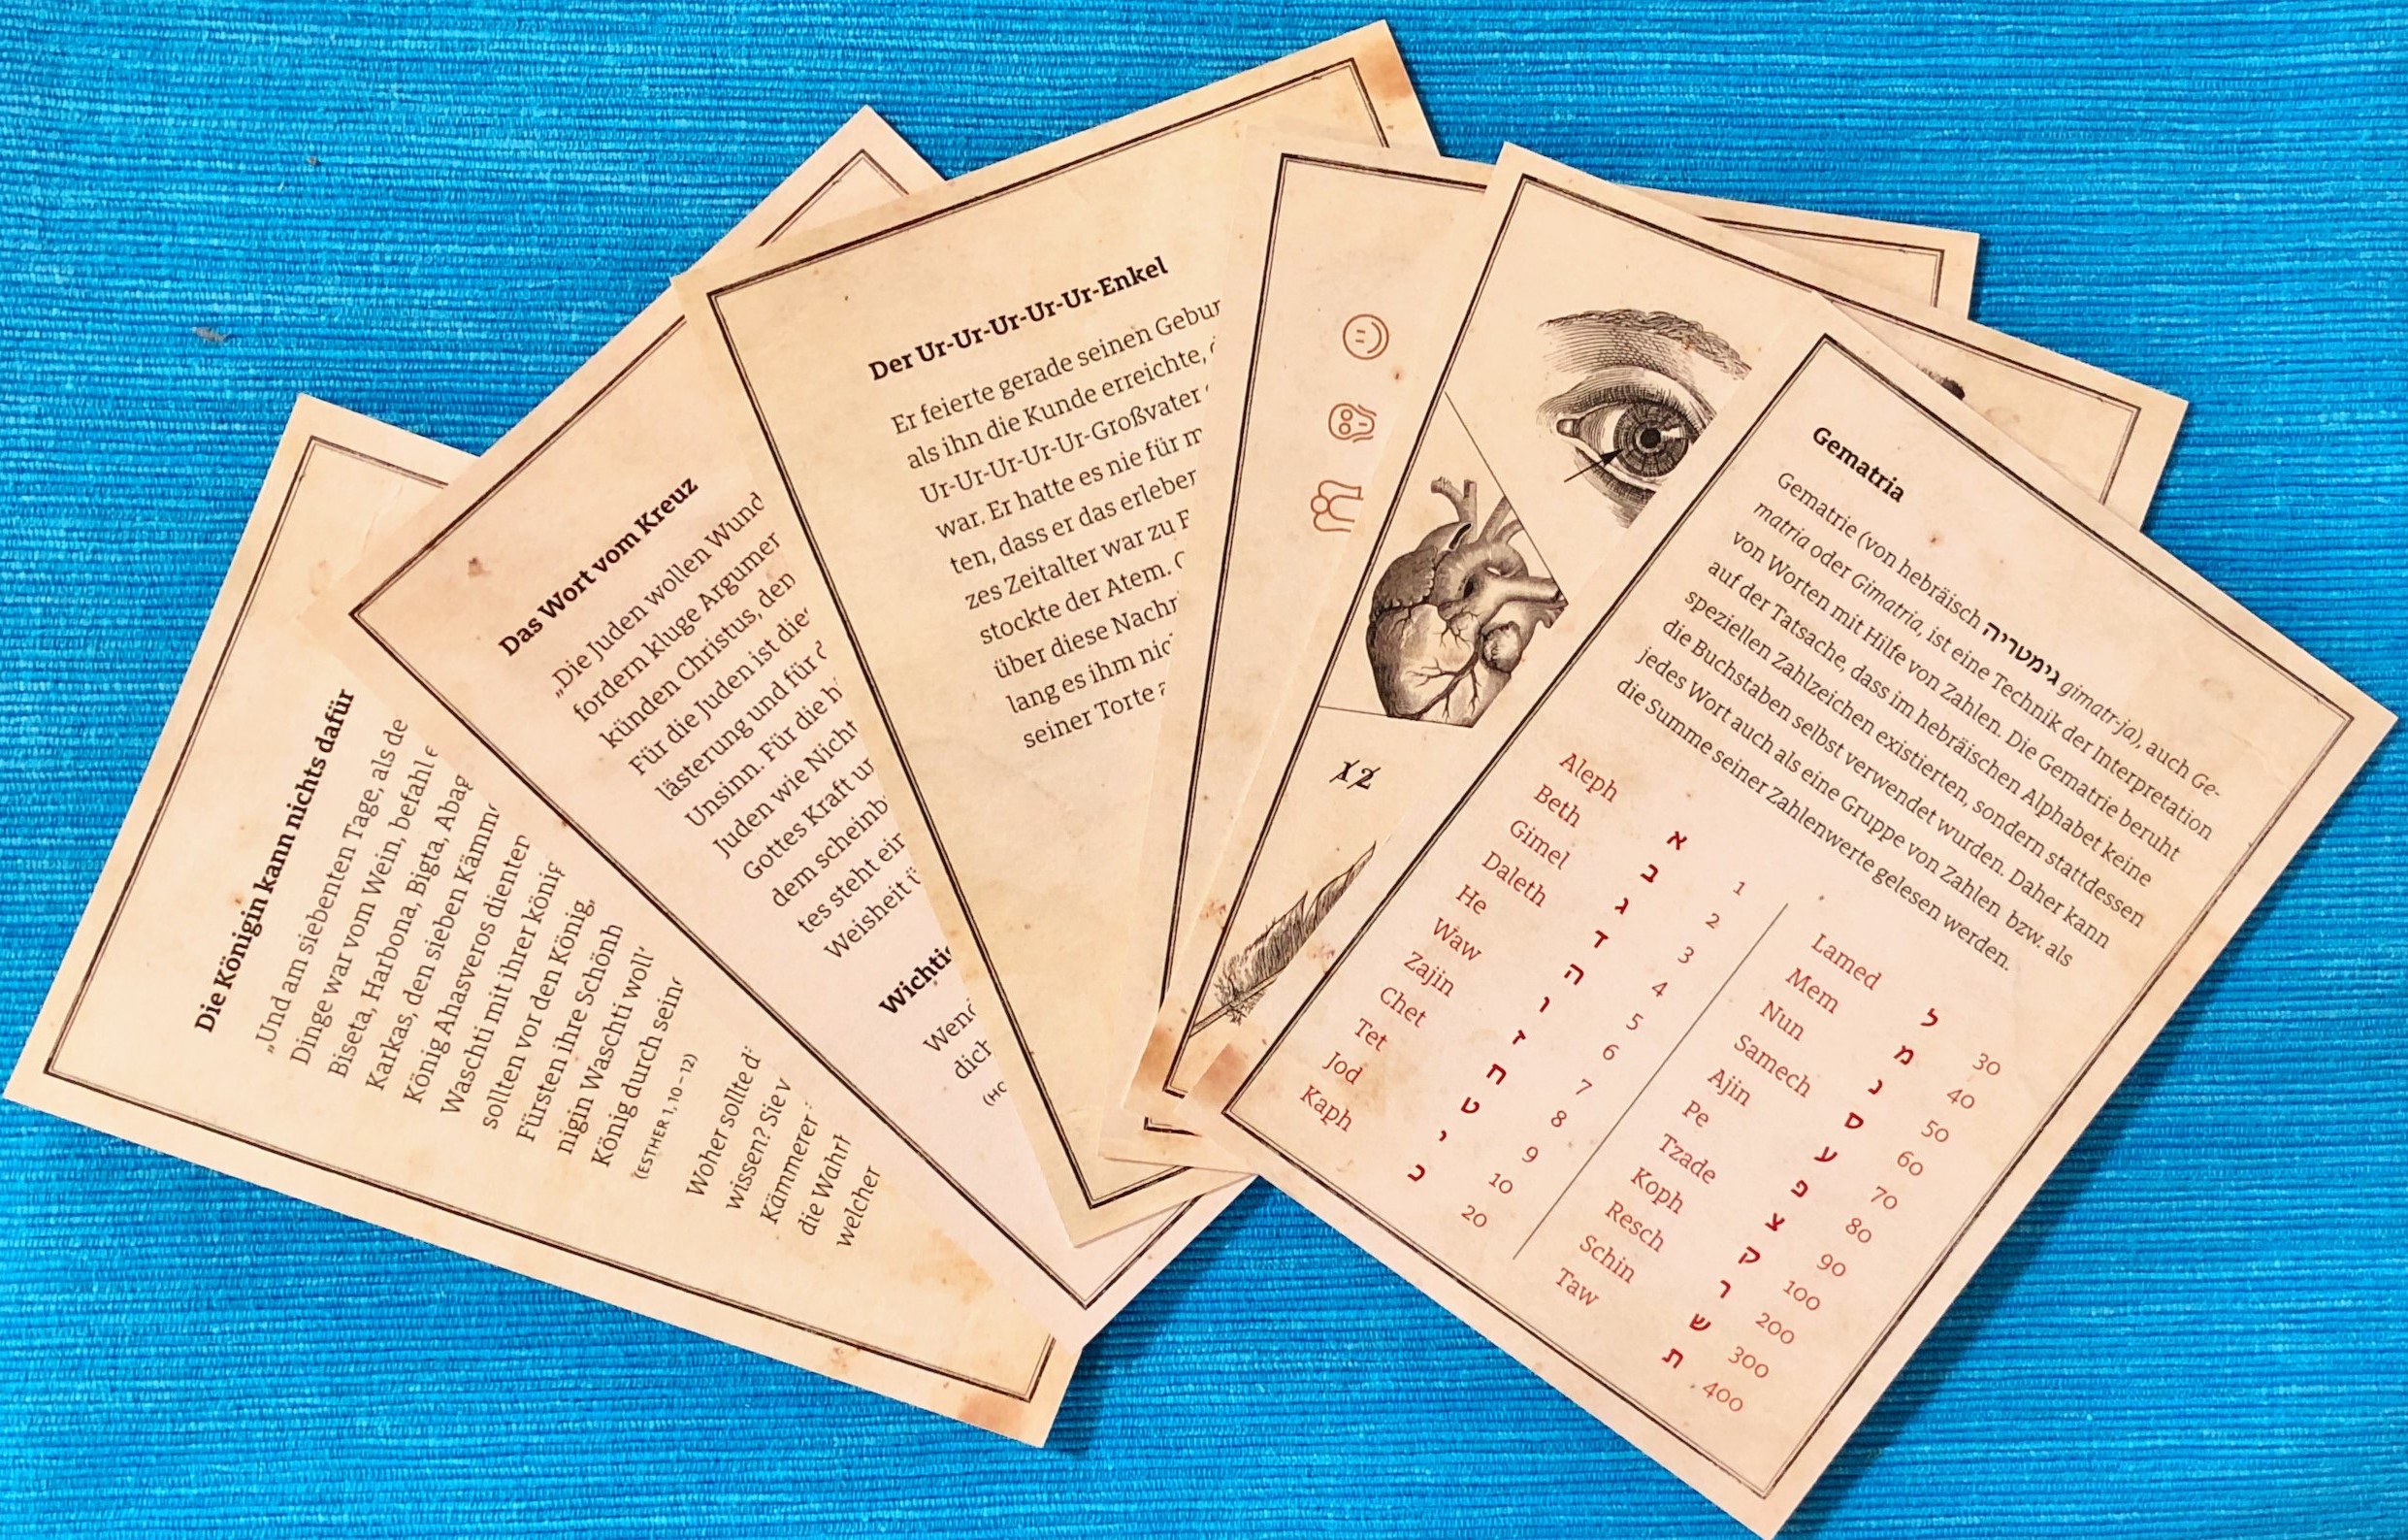 Die Königin kann nichts dafür
„Und am siebenten Tage, als de
Dinge war vom Wein, befahl e
Biseta, Harbona, Bigta, Abag
Karkas, den sieben Kämm
König Ahasveros dienten
Waschti mit ihrer könig
sollten vor den König,
Fürsten ihre Schönh
nigin Waschti woll
König durch sein
(ESTHER 1, 10 – 12)
Woher sollte d
wissen? Sie v
Kämmerer
die Wahrh
welcher
Das Wort vom Kreuz
„Die Juden wollen Wund
fordern kluge Argumen
künden Christus, den
Für die Juden ist die
lästerung und für d
Unsinn. Für die b
Juden wie Nicht
Gottes Kraft un
dem scheinb
tes steht ein
Weisheit ü
Wichtig
Wenn
dich
(HO
Der Ur-Ur-Ur-Ur-Ur-Enkel
Er feierte gerade seinen Gebur
als ihn die Kunde erreichte, d
Ur-Ur-Ur-Ur-Großvater
war. Er hatte es nie für m
ten, dass er das erleben
zes Zeitalter war zu E
stockte der Atem. G
über diese Nachri
lang es ihm nic
seiner Torte a
12
Gematria
Gematrie (von hebräisch גימטריה gimatr-ja), auch Ge-
matria oder Gimatria, ist eine Technik der Interpretation
von Worten mit Hilfe von Zahlen. Die Gematrie beruht
auf der Tatsache, dass im hebräischen Alphabet keine
speziellen Zahlzeichen existierten, sondern stattdessen
die Buchstaben selbst verwendet wurden. Daher kann
jedes Wort auch als eine Gruppe von Zahlen bzw. als
die Summe seiner Zahlenwerte gelesen werden.
Aleph א 1
Beth ב 2
Gimel ג 3
Daleth ד 4
He ה 5
Waw ו 6
Zajin ז 7
Chet ח 8
Tet ט 9
Jod י 10
Kaph כ 20
Lamed ל 30
Mem מ 40
Nun נ 50
Samech ס 60
Ajin ע 70
Pe פ 80
Tzade צ 90
Koph ק 100
Resch ר 200
Schin ש 300
Taw ת 400